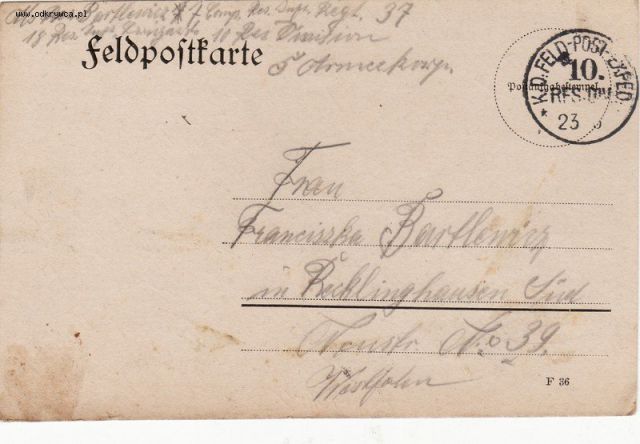 www.odkrywca.pl
Bartlewicz 7 Comp. Res. Inft. Regt. 37
18 Res. 10 Res Division
5 Armeekorps
Feldpostkarte
K.D.FELD-POST-EXPED.
10.
RES. DIV.
23
Frau
Franciszka Bartlewicz
in Recklinghausen Süd
Neustr No 39
Westfalen
F 36